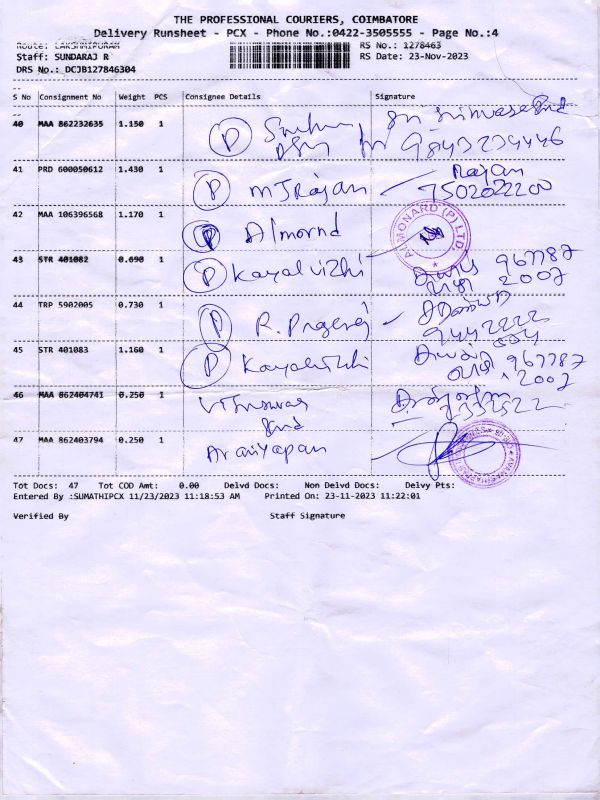 THE PROFESSIONAL COURIERS, COIMBATORE
Delivery Runsheet - PCX - Phone No.:0422-3505555 - Page No.:4
Route: LAKSHMIPURAM RS No.: 1278463
Staff: SUNDARAJ R RS Date: 23-Nov-2023
DRS No.: DCJB127846304
S No Consignment No Weight PCS Consignee Details Signature
40 MAA 862232635 1.150 1 P
41 PRD 600050612 1.430 1 P M J Rajan Rajan
42 MAA 106396568 1.170 1 P Almornd
43 STR 401082 0.690 1 P Kayalvizhi 967787
2007
44 TRP 5902005 0.730 1 P
45 STR 401083 1.160 1 P 967787
2007
46 MAA 862404741 0.250 1
47 MAA 862403794 0.250 1
Tot Docs: 47 Tot COD Amt: 0.00 Delvd Docs: Non Delvd Docs: Delvy Pts:
Entered By :SUMATHIPCX 11/23/2023 11:18:53 AM Printed On: 23-11-2023 11:22:01
Verified By Staff Signature